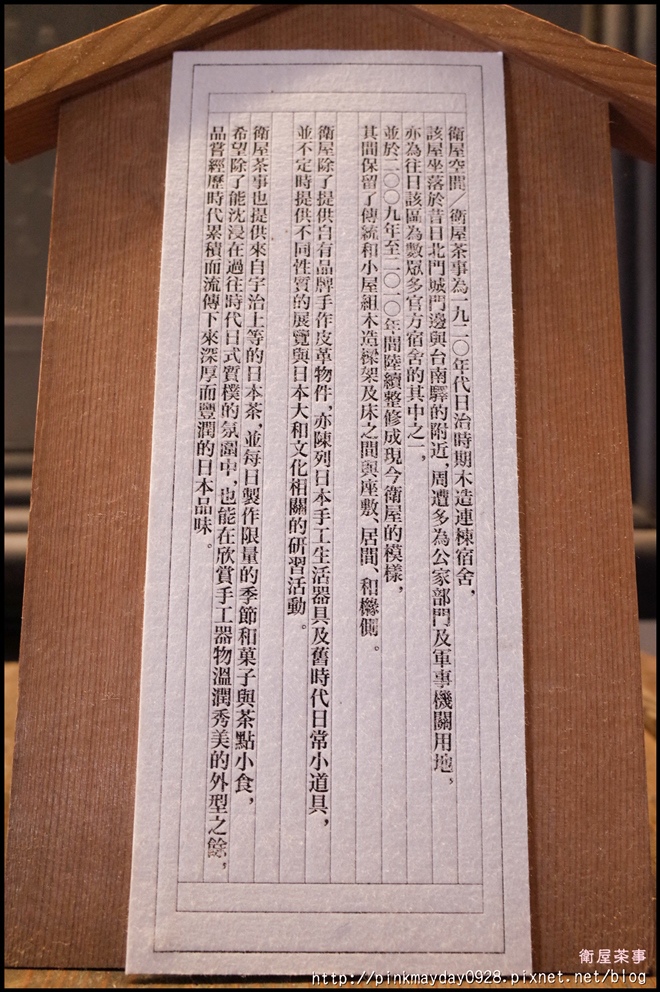 衛屋空間／衛屋茶事為一九二〇年代日治時期木造連棟宿舍，
該屋坐落於昔日北門城門邊與台南驛的附近，周遭多為公家部門及軍事機關用地，
亦為往日該區為數眾多官方宿舍的其中之一，
並於二〇〇九年至二〇一〇年間陸續整修成現今衛屋的模樣，
其間保留了傳統和小屋組木造樑架及床之間與座敷、居間、和緣側。
衛屋除了提供自有品牌手作皮革物件，亦陳列日本手工生活器具及舊時代日常小道具，
並不定時提供不同性質的展覽與日本大和文化相關的研習活動。
衛屋茶事也提供來自宇治上等的日本茶，並每日製作限量的季節和菓子與茶點小食，
希望除了能沈浸在過往時代日式質樸的氛圍中，也能在欣賞手工器物溫潤秀美的外型之餘，
品嘗經歷時代累積而流傳下來深厚而豐潤的日本品味。
衛屋茶事
http://pinkmayday0928.pixnet.net/blog